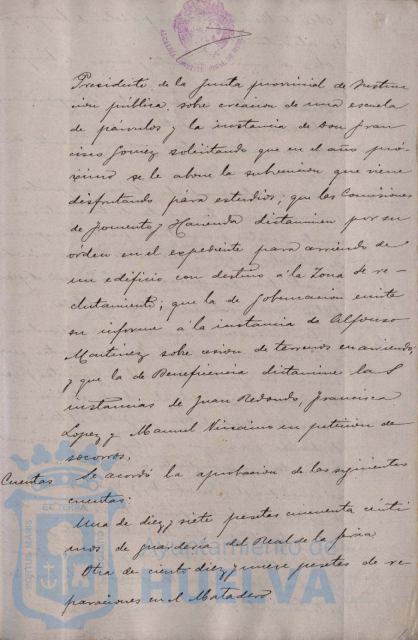 Presidente de la Junta provincial de Instruc
ción pública, sobre creacion de una escuela
de párvulos; y la instancia de Don Fran
cisco Gomez solicitando que en el año pró-
ximo se le abone la subvencion que viene
disfrutando para estudios; que las Comisiones
de Fomento y Hacienda dictaminen por su
órden en el expediente para arriendo de
un edificio con destino á la Zona de re-
clutamiento; que la de Gobernacion emita
su informe á la instancia de Alfonso
Martinez sobre cesion de terrenos en arriendo;
y que la de Beneficencia dictamine las
instancias de Juan Redondo, Francisca
Lopez y Manuel en peticion de
socorros.
Cuentas Se acordó la aprobacion de las siguientes
cuentas:
Una de diez y siete pesetas cincuenta cénti
mos de guarderia del Real de la feria
Otra de ciento diez y nueve pesetas de re
paraciones en el Matadero.
Ayuntamiento de
HUELVA